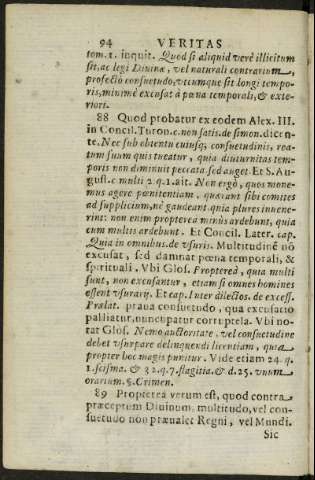 94 VERITAS
tom.1. inquit. Quod si aliquid verè illicitum
sit, ac legi Diuinæ, vel naturali contrarium,
profectò consuetudo, vtcumque sit longi tempo-
ris, minimè excusat à pœna temporali, & exte-
riori.
88 Quod probatur ex eodem Alex. III.
in Concil. Turon. c. non satis. de simon. dicen-
te. Nec sub obtentu cuiusq; consuetudinis, rea-
tum suum quis tueatur, quia diuturnitas tem-
poris non diminuit peccata sed auget. Et S. Au-
gust. c. multi 2. q. 1. ait. Non ergò, quos mone-
mus agere pœnitentiam, quærant sibi comites
ad supplicium, nè gaudeant quia plures inuene-
rint: non enim propterea minùs ardebunt, quia
cum multis ardebunt. Et Concil. Later. cap.
Quia in omnibus. de vsuris. Multitudinē nō
excusat, sed damnat pœna temporali, &
spirituali. Vbi Glos. Propterea, quia multi
sunt, non excusantur, etiam si omnes homines
essent vsurarij. Et cap. Inter dilectos. de excess.
Prælat. praua consuetudo, qua excusatio
palliatur, nuncupatur corruptela. Vbi no-
tat Glos. Nemo auctoritate, vel consuetudine
debet vsurpare delinquendi licentiam, quia
propter hoc magis punitur. Vide etiam 24. q.
1. scisma. & 32. q. 7. flagitia. & d. 25. vnum
orarium. §. Crimen.
89 Propterea verum est, quod contra
præceptum Diuinum, multitudo, vel con-
suetudo non præualet Regni, vel Mundi.
Sic